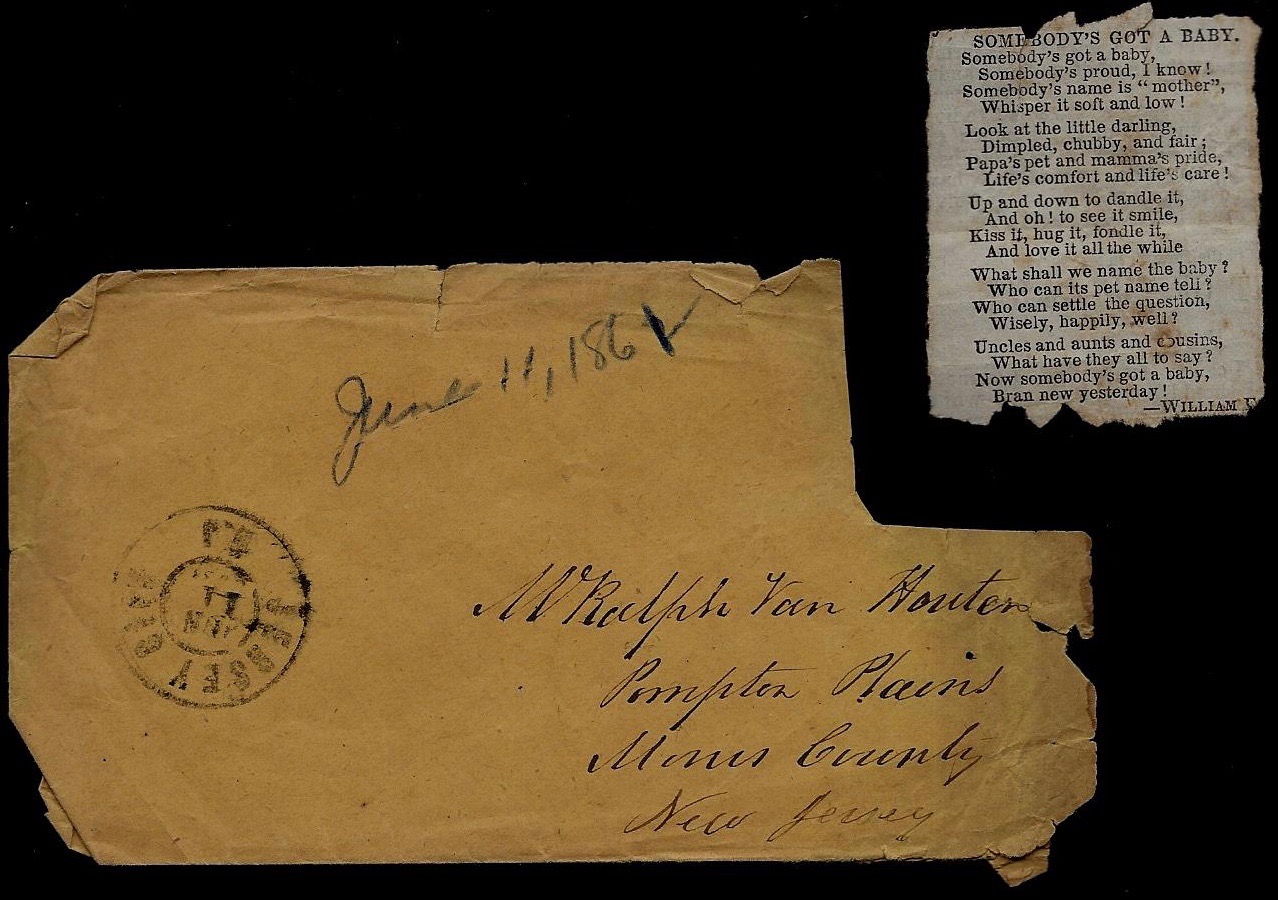 SOMEBODY'S GOT A BABY.
Somebody's got a baby,
Somebody's proud, I know!
Somebody's name is "mother",
Whisper it soft and low!
Look at the little darling,
Dimpled, chubby, and fair;
Papa's pet and mamma's pride,
Life's comfort and life's care!
Up and down to dandle it,
And oh! to see it smile,
Kiss it, hug it, fondle it,
And love it all the while
What shall we name the baby?
Who can its pet name tell?
Who can settle the question,
Wisely, happily, well?
Uncles and aunts and cousins,
What have they all to say?
Now somebody's got a baby,
Bran new yesterday!
—WILLIAM
June 11, 186
JERSEY CITY N.J.
JUN
11
Mr Ralph Van Houten
Pompton Plains
Morris County
New Jersey